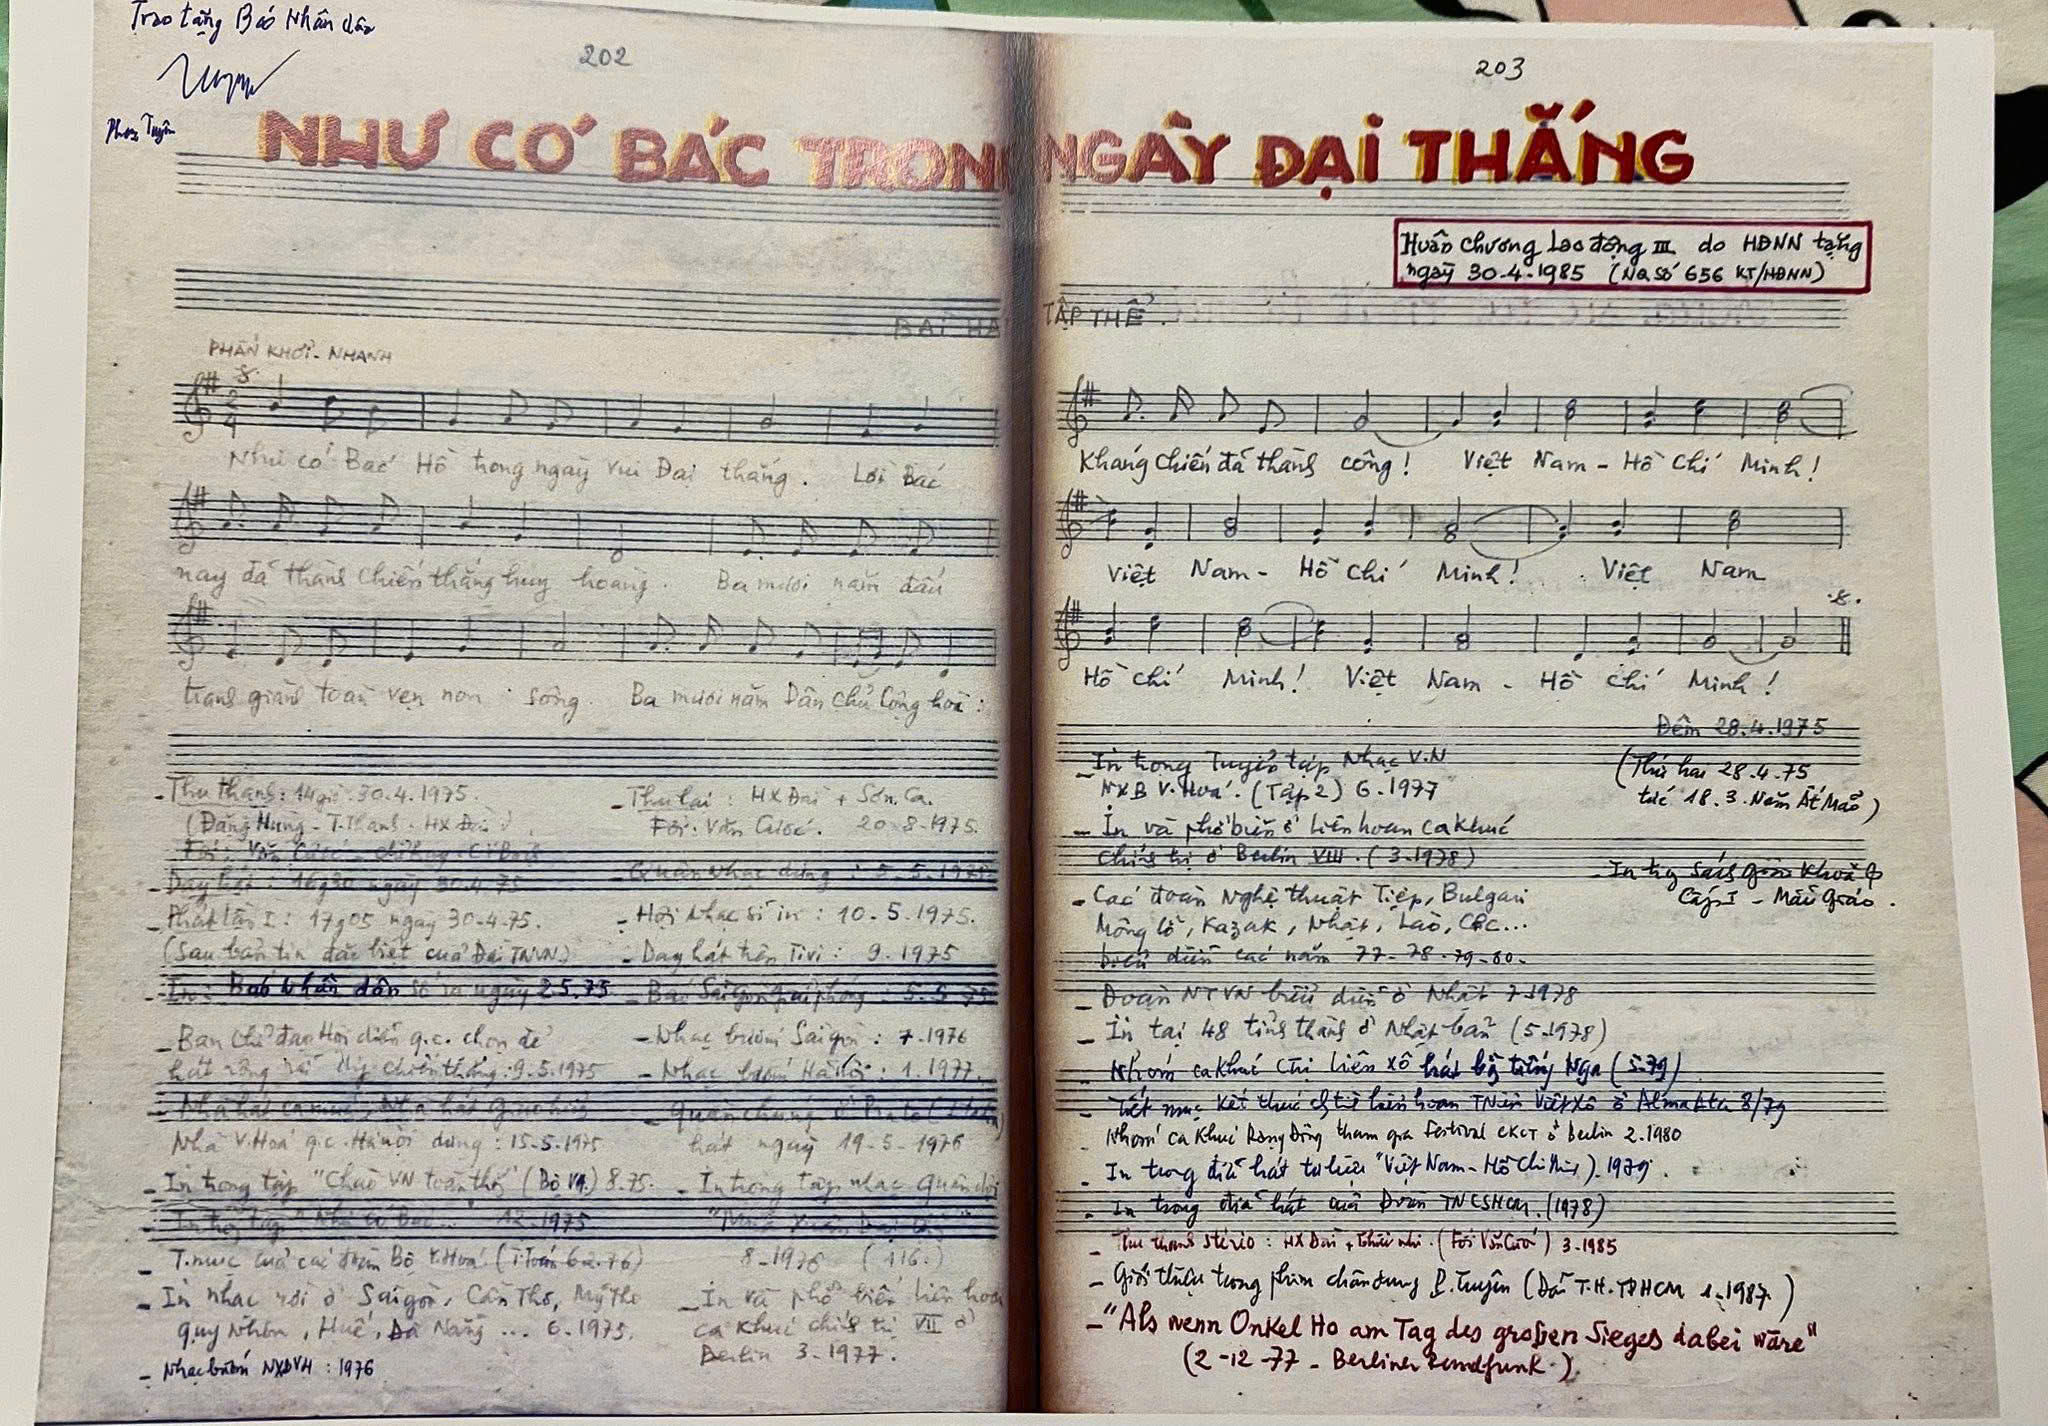 Trao tặng Báo Nhân dân
Phạm Tuyên
202
203
NHƯ CÓ BÁC TRONG NGÀY ĐẠI THẮNG
Huân chương Lao động III do HĐNN tặng
ngày 30-4-1985 (NQ số 656 KT/HĐNN)
BÀI HÁT TẬP THỂ.
PHẤN KHỞI - NHANH
2
4
Như có Bác Hồ trong ngày vui Đại thắng. Lời Bác
nay đã thành Chiến thắng huy hoàng. Ba mươi năm đấu
tranh giành toàn vẹn non sông. Ba mươi năm Dân chủ Cộng hoà:
Kháng chiến đã thành công! Việt Nam - Hồ Chí Minh!
Việt Nam - Hồ Chí Minh! Việt Nam
Hồ Chí Minh! Việt Nam - Hồ Chí Minh!
Đêm 28.4.1975
(Thứ hai 28.4.75
tức 18.3. Năm Ất Mão)
- Thu thanh: 14giờ 30.4.1975.
(Đăng Hùng - T.Thanh - HX Đài
- Dạy hát: 16g30 ngày 30.4.75
- Phát lần I: 17g05 ngày 30-4-75.
(Sau bản tin đặc biệt của Đài TNVN)
- In: Báo Nhân dân số ra ngày 2.5.75
- Ban chỉ đạo Hội diễn q.c. chọn để
hát chiến thắng: 9-5-1975
Nhà V.Hoá q.c. Hà Nội dùng: 15-5-1975
- In trong tập "Chào VN toàn thắng" (Bộ VH.) 8.75.
- In trg tập "Như có Bác..." 12-1975
- T.mục của các đoàn Bộ V.Hoá. (T.Toán 6-2-76)
- In nhạc rời ở Saigòn, Cần Thơ, Mỹ Tho
Quy Nhơn, Huế, Đà Nẵng ... 6.1975.
- Nhạc bướm NXBVH: 1976
- Thu lại: HX Đài + Sơn Ca.
Fối: Văn Cước. 20-8-1975.
- Quân nhạc dùng: 5.5.1975
- Hội Nhạc sĩ in: 10-5-1975.
- Dạy hát trên Tivi: 9-1975
- Báo Saigon giải phóng: 5.5.75
- Nhạc bướm Saigòn: 7-1976
- Nhạc bướm Hà Nội: 1.1977.
- Quần chúng ở Prato (Italia)
hát ngày 19-5-1976
- In trong tập nhạc Quân đội
8-1976 (116.)
- In và phổ biến liên hoan
ca khúc chính trị VII ở
Berlin 3-1977.
- In trong Tuyển tập Nhạc V.N
NXB V.Hoá. (Tập 2) 6.1977
- In và phổ biến ở liên hoan ca khúc
chính trị ở Berlin VIII. (3-1978)
- In trg sách Giáo Khoa
Cấp I - Mẫu Giáo.
- Các đoàn Nghệ thuật Tiệp, Bulgari
Mông Cổ, Kazak, Nhật, Lào, CPC...
biểu diễn các năm 77-78-79-80-
- Đoàn NTVN biểu diễn ở Nhật 7-1978
- In tại 48 tỉnh thành ở Nhật bản (5-1978)
- Nhóm ca khúc CTrị Liên Xô hát bằng tiếng Nga (5-79)
- Tiết mục kết thúc liên hoan TNiên Việt Xô ở Alma Ata 8/79
- Nhóm ca khúc Rạng Đông tham gia Festival CKCT ở Berlin 2.1980
- In trong đĩa hát "Việt Nam - Hồ Chí Minh). 1979.
- In trong đĩa hát của Đoàn TNCSHCM. (1978)
- Thu thanh stério: HX Đài + thiếu nhi. (Fối Văn Cước) 3-1985
- Giới thiệu trong phim chân dung P. Tuyên (Đài T.H. TPHCM 1-1987)
- "Als wenn Onkel Ho am Tag des großen Sieges dabei wäre"
(2-12-77 - Berliner Rundfunk)